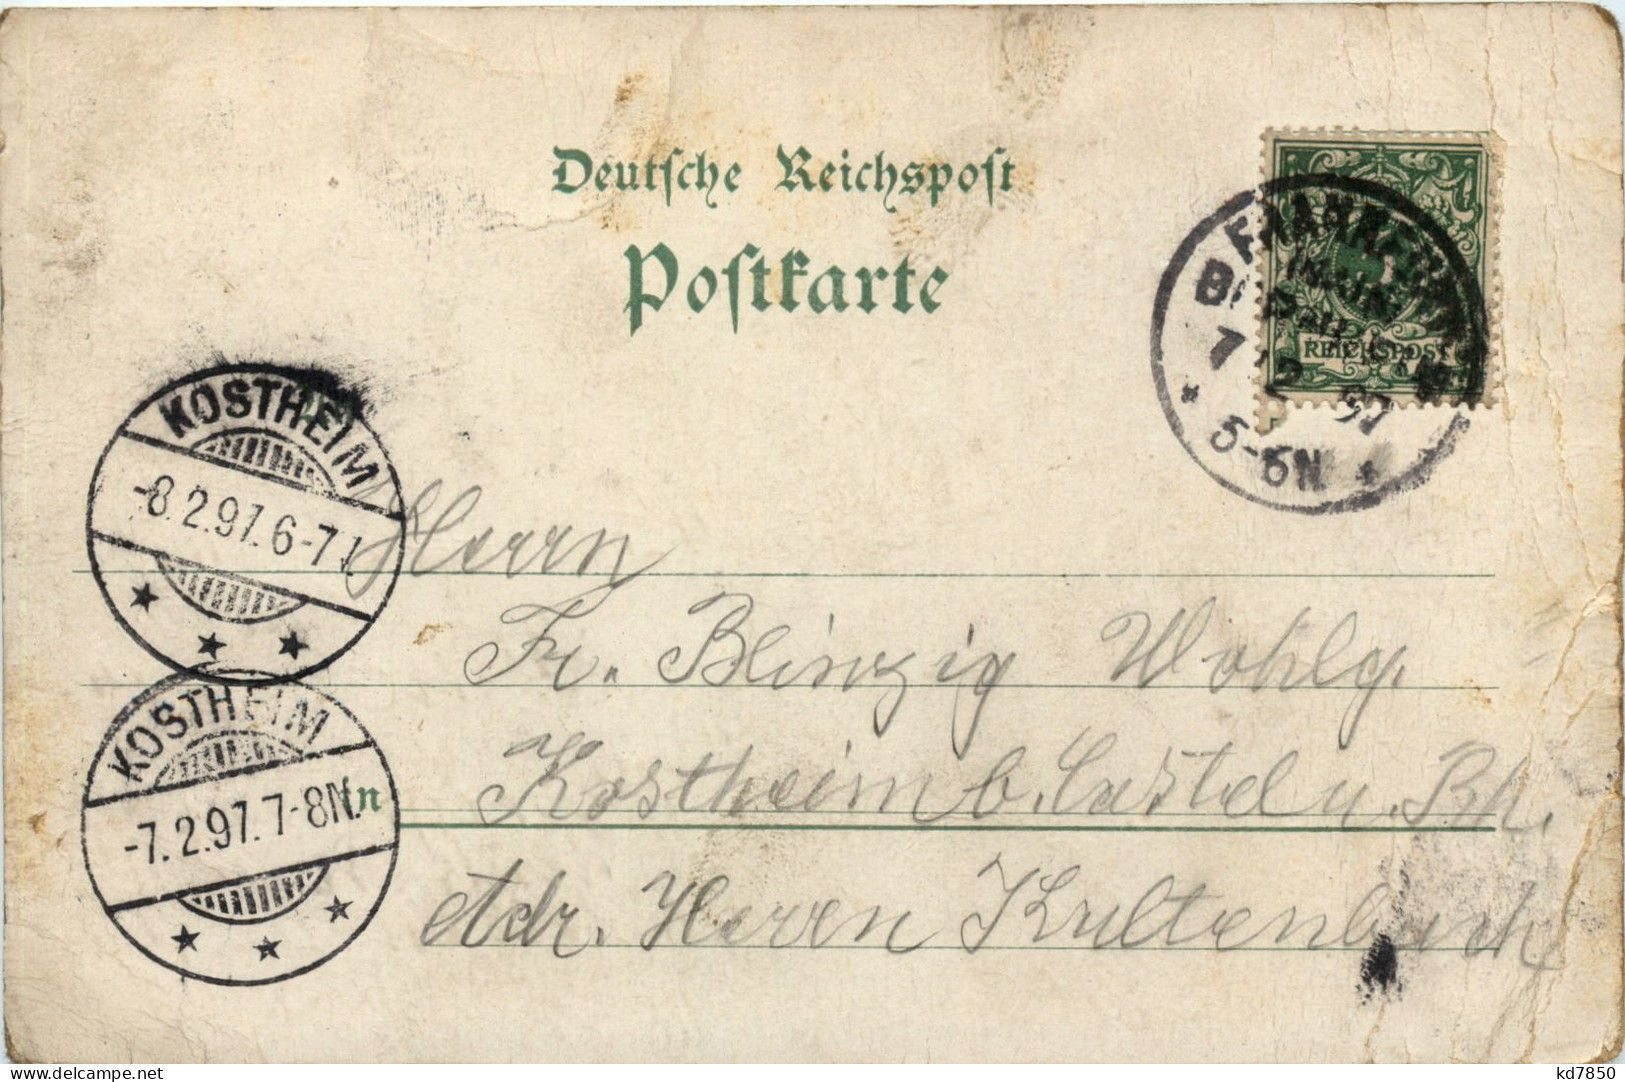 Deutsche Reichspost
Postkarte
FRANKFURT
(Main)
7 2 97
5-6N
REICHSPOST
KOSTHEIM
-8.2.97. 6-7
Herrn
Fr. Blinzig Wohlg.
KOSTHEIM
-7.2.97. 7-8N.
In
Kostheim b. Castel a. Rh.
Adr. Herrn Krultenbuch
delcampe.net
kd7850